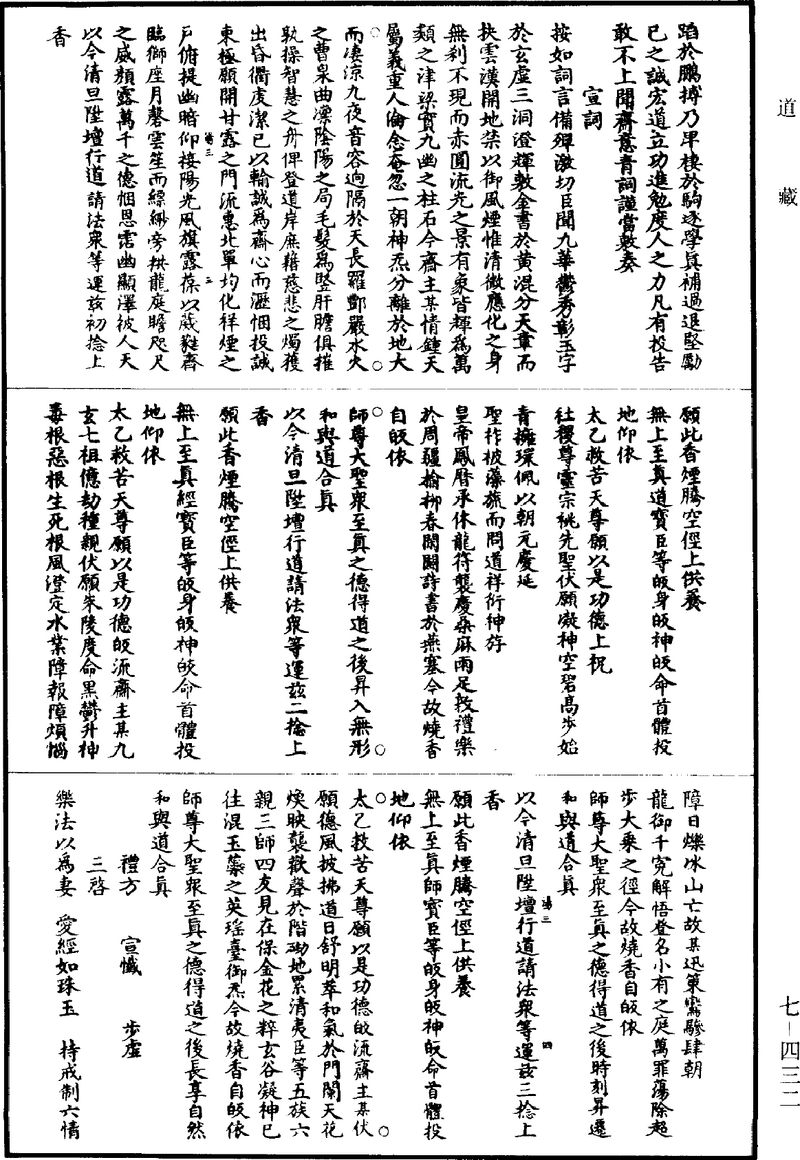 道藏
蹈於鵬搏乃早棲於駒逐學真補過退堅勵
已之誠宏道立功進勉度人之力凡有投告
敢不上聞齋意青詞謹當敷奏
宣詞
按如詞言備殫激切臣聞九華鬱秀彰玉字
於玄虛三洞澄輝敷金書於黃混分天章而
扶雲漢開地禁以御風煙惟清微應化之身
無刹不現而赤圓流光之景有象皆輝為萬
類之津梁實九幽之柱石今齋主某情鍾天
屬義重人倫念奄忽一朝神炁分離於地大
而凄涼九夜音容逈隔於天長羅酆嚴水火
之曹泉曲凛陰陽之局毛髮為竪肝膽俱摧
孰操智慧之舟俾登道岸庶藉慈悲之燭獲
出昏衢虔潔已以輸誠為齋心而瀝悃投誠
東極願開甘露之門流惠北單均化祥煙之
戶俯提幽暗仰接陽光風旗露葆以葳蕤齋
臨獅座月磬雲笙而縹緲旁拱龍庭瞻咫尺
之威顏露萬千之德悃恩霑幽顯澤被人天
以今清旦陞壇行道請法眾等運茲初捻上
香
願此香煙騰空徑上供養
無上至真道寶臣等皈身皈神皈命首體投
地仰依
太乙救苦天尊願以是功德上祝
社稷尊靈宗祧先聖伏願凝神空碧高步始
青擁環佩以朝元慶延
聖祚披藻旒而問道祥衍神游
皇帝鳳曆承休龍符襲慶桑麻雨足敦禮樂
於周疆榆柳春閑闢詩書於燕塞今故燒香
自皈依
師尊大聖眾至真之德得道之後昇入無形
和與道合真
以今清旦陞壇行道請法眾等運茲二捻上
香
願此香煙騰空徑上供養
無上至真經寶臣等皈身皈神皈命首體投
地仰依
太乙救苦天尊願以是功德皈流齋主某九
玄七祖億劫種親伏願朱陵度命黑鬱升神
毒根惡根生死根風澄定水業障報障煩惱
障日爍冰山亡故某迅策鸞驂肆朝
龍御千冤解悟登名小有之庭萬罪蕩除超
步大乘之徑今故燒香自皈依
師尊大聖眾至真之德得道之後時刻昇遷
和與道合真
以今清旦陞壇行道請法眾等運茲三捻上
香
願此香煙騰空徑上供養
無上至真師寶臣等皈身皈神皈命首體投
地仰依
太乙救苦天尊願以是功德皈流齋主某伏
願德風披拂道日舒明萃和氣於門闌天花
煥映襲歡聲於階砌地累清夷臣等五族六
親三師四友見在保金花之粹玄谷凝神已
往混玉蘂之英瑤臺御炁今故燒香自皈依
師尊大聖眾至真之德得道之後長享自然
和與道合真
禮方 宣懺 步虛
三啓
樂法以為妻 愛經如珠玉 持戒制六情
七－四三二